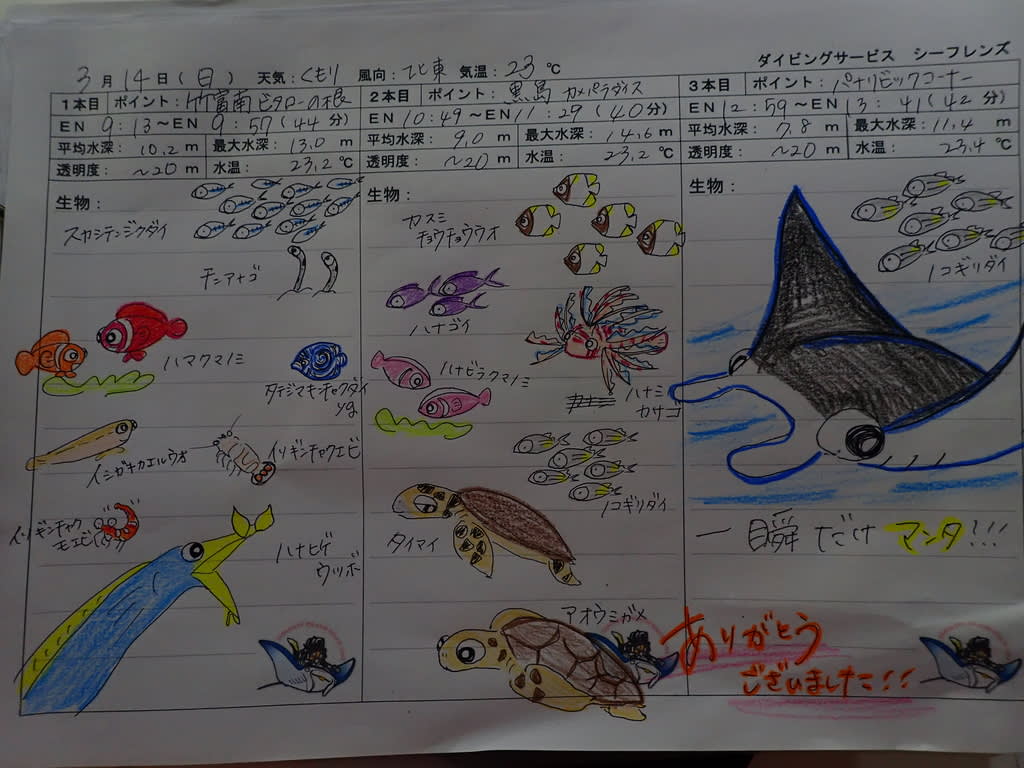 ダイビングサービス シーフレンズ
3月14日(日) 天気:くもり 風向: 気温:23℃
1本目 ポイント:竹富南ビタローの根
EN 9:13~EN 9:57(44分)
平均水深:10.2m 最大水深:13.0m
透明度:~20m 水温:23.2℃
生物:
スカシテンジクダイ
チンアナゴ
ハマクマノミ
タテジマキンチャクダイ
yg
イシガキカエルウオ
イソギンチャクエビ
イソギンチャク
モエビ
ハナヒゲ
ウツボ
2本目 ポイント:黒島 カメパラダイス
EN 10:49~EN 11:29(40分)
平均水深:9.0m 最大水深:14.6m
透明度:~20m 水温:23.2℃
生物:
カスミ
チョウチョウウオ
ハナゴイ
ハナビラクマノミ
ハナミ
カサゴ
ノコギリダイ
タイマイ
アオウミガメ
3本目 ポイント:パナリビックコーナー
EN 12:59~EN 13:41(42分)
平均水深:7.8m 最大水深:11.4m
透明度:~20m 水温:23.4℃
生物:
ノコギリダイ
一瞬だけマンタ!!!
ありがとう
ございました!!